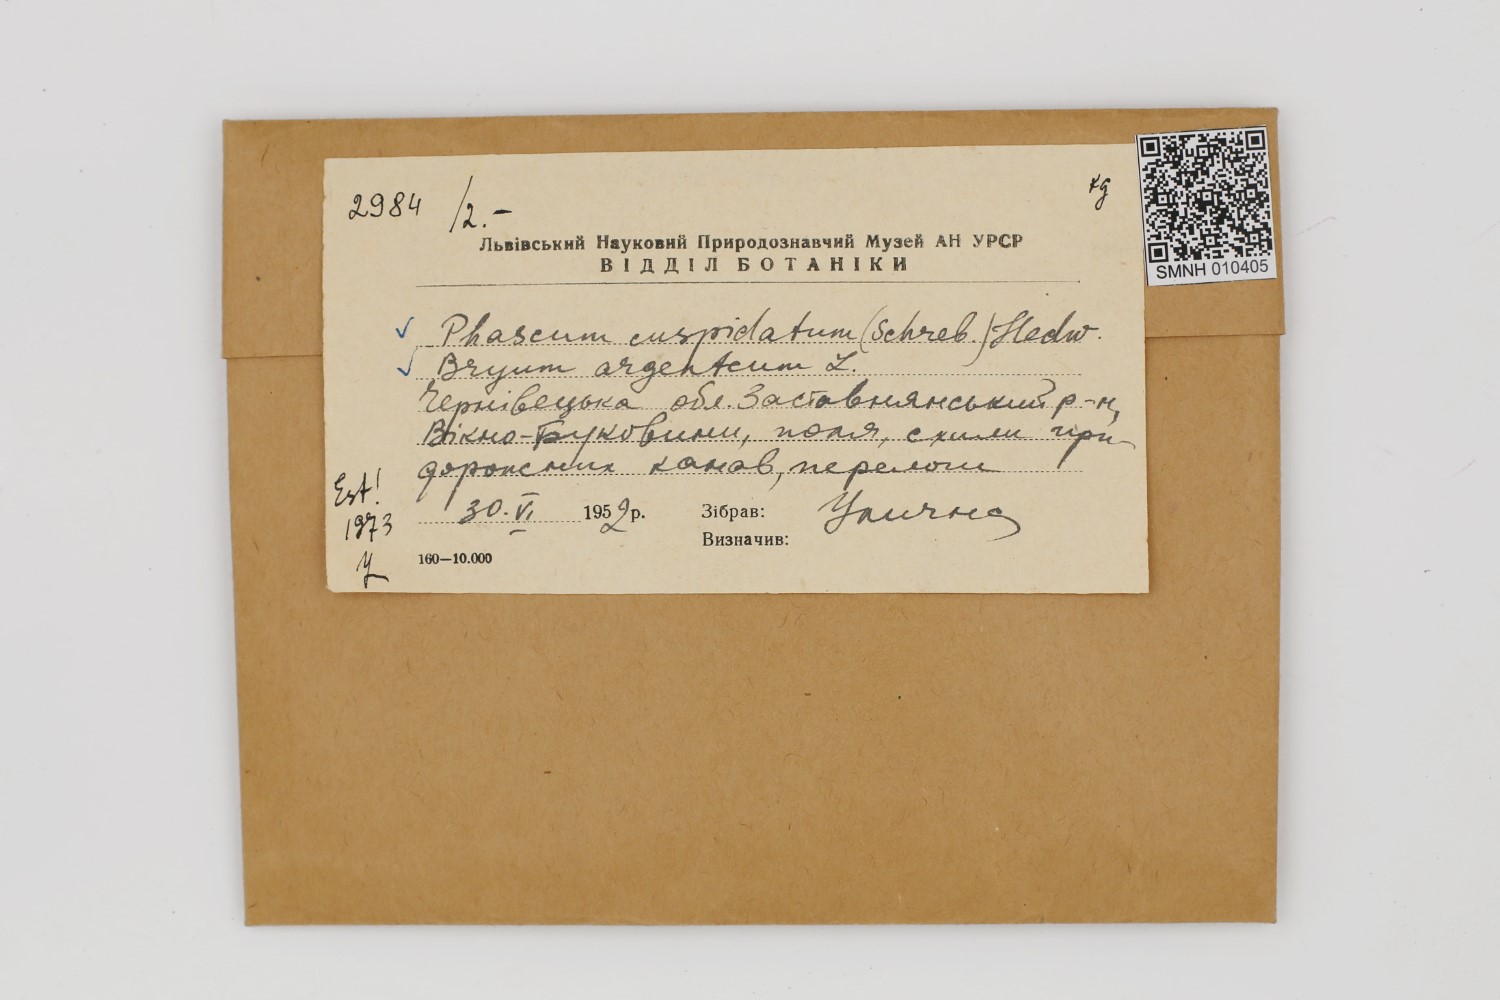 2984 /2.-
Львівський Науковий Природознавчий Музей АН УРСР
ВІДДІЛ БОТАНІКИ
SMNH 010405
Phascum cuspidatum (Schreb.) Hedw.
Bryum argenteum L.
Чернівецька обл. Заставнянський р-н,
Вікно-Буковини, поля, схили при-
дорожних канав, перелоги
Est!
1973
30.VI 1952р. Зібрав: Улична
Визначив:
160—10.000